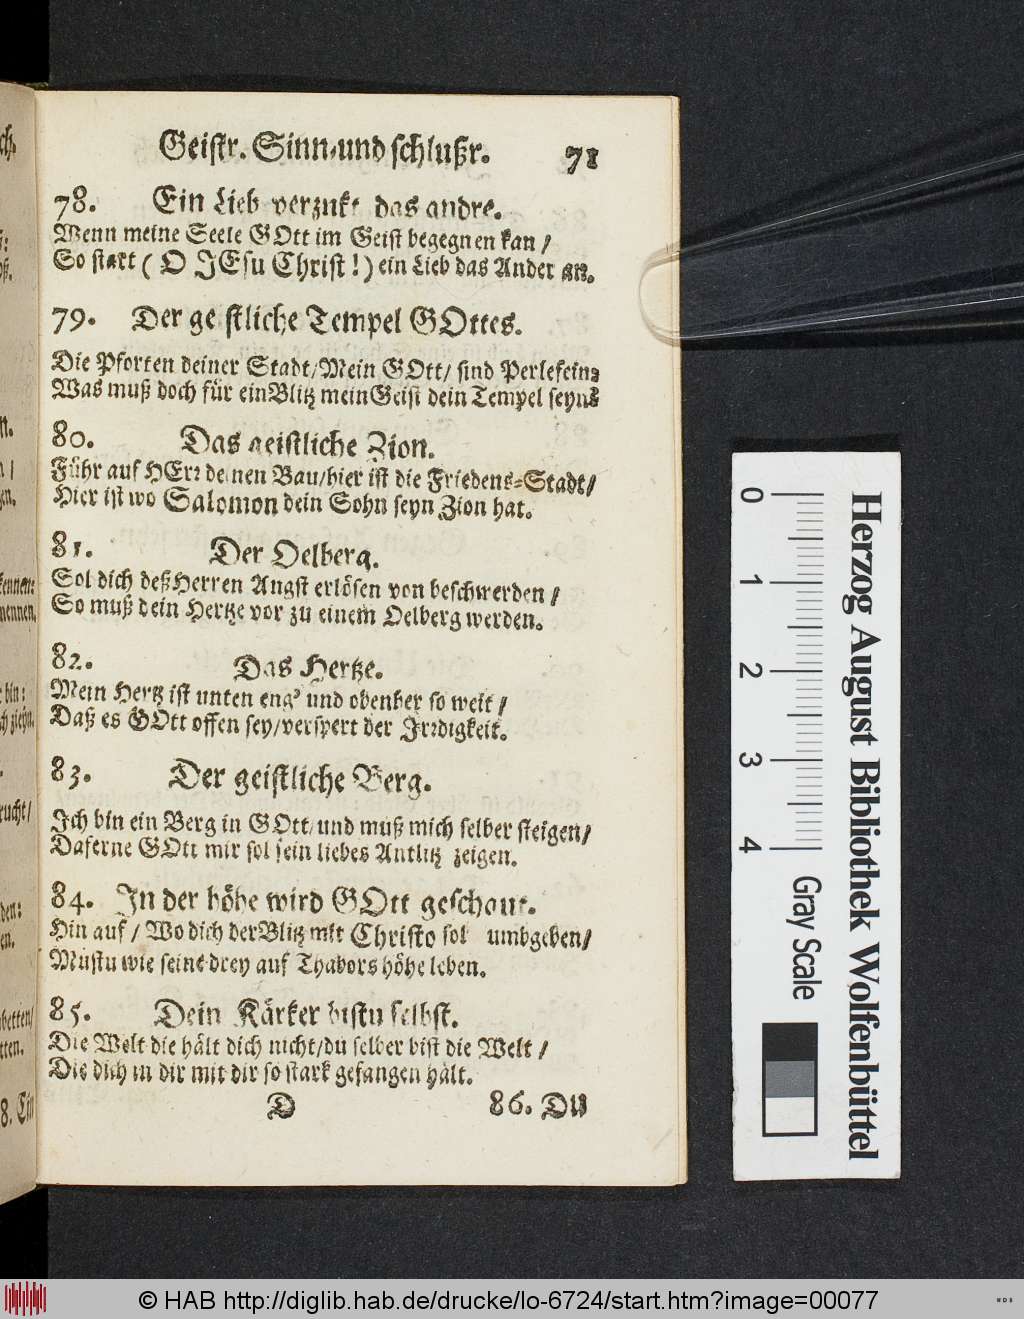 Geistr. Sinn-und schlußr. 71
78. Ein Lieb verzukt das andre.
Wenn meine Seele GOtt im Geist begegnen kan /
So starrt ( O JEsu Christ ! ) ein Lieb das Ander an.
79. Der geistliche Tempel GOttes.
Die Pforten deiner Stadt/Mein GOtt/ sind Perlefein:
Was muß doch für ein Blitz mein Geist dein Tempel seyn?
80. Das geistliche Zion.
Führ auf HErr deinen Bau/hier ist die Friedens-Stadt/
Hier ist wo Salomon dein Sohn seyn Zion hat.
81. Der Oelberg.
Sol dich deß Herren Angst erlösen von beschwerden /
So muß dein Hertze vor zu einem Oelberg werden.
82. Das Hertze.
Mein Hertz ist unten eng' und obenher so weit /
Daß es GOtt offen sey/versperrt der Irrdigkeit.
83. Der geistliche Berg.
Ich bin ein Berg in GOtt/und muß mich selber steigen/
Daferne GOtt mir sol sein liebes Antlitz zeigen.
84. In der höhe wird GOtt geschaut.
Hin auf / Wo dich der Blitz mit Christo sol umbgeben/
Mustu wie seine drey auf Thabors höhe leben.
85. Dein Kärker bistu selbst.
Die Welt die hält dich nicht/du selber bist die Welt /
Die dich in dir mit dir so stark gefangen hält.
D 86. DU
0 1 2 3 4
Herzog August Bibliothek Wolfenbüttel
Gray Scale
© HAB http://diglib.hab.de/drucke/lo-6724/start.htm?image=00077